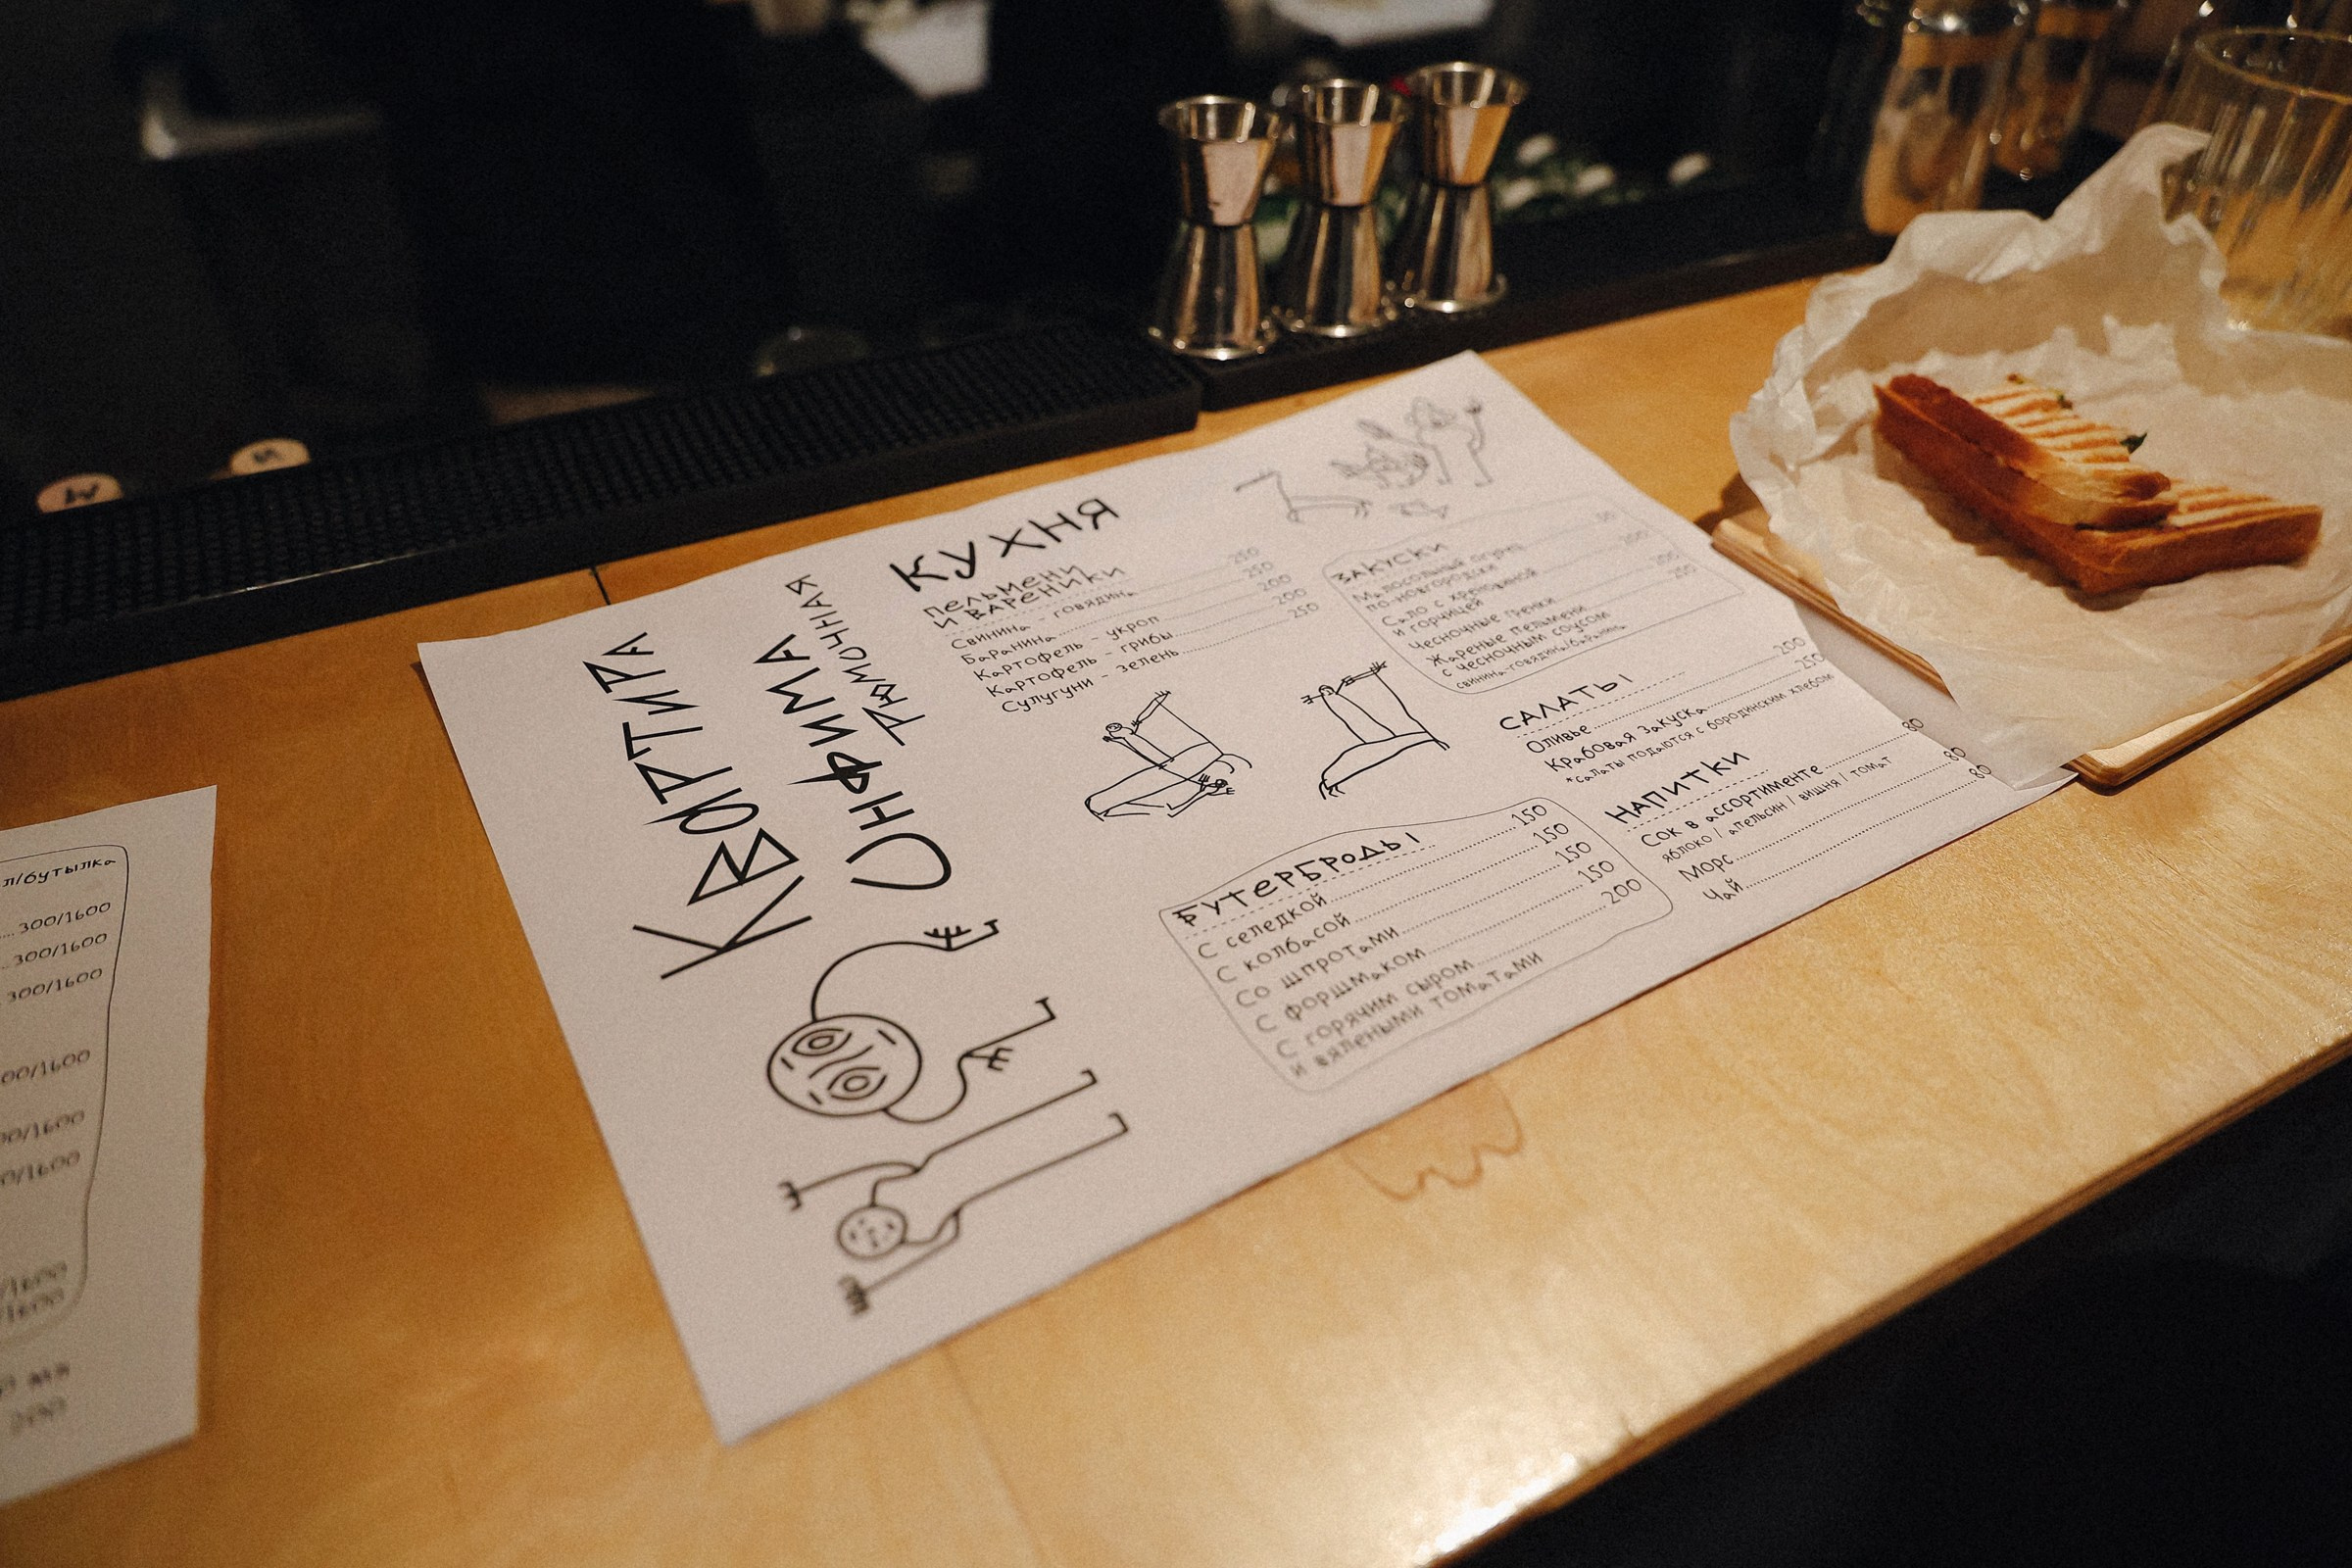 Квартира
Онфима
Рюмочная
Кухня
Пельмени
и вареники
Свинина – говядина 250
Баранина 250
Картофель – укроп 200
Картофель – грибы 200
Сулугуни – зелень 250
Закуски
Малосольный огурец
по-новгородски
Сало с хреновиной
и горчицей
Чесночные гренки
Жареные пельмени
с чесночным соусом
свинина-говядина/баранина
Салаты
Оливье 200
Крабовая закуска 250
*салаты подаются с бородинским хлебом
Бутерброды
С селедкой 150
С колбасой 150
Со шпротами 150
С форшмаком 150
С горячим сыром 200
и вялеными томатами
Напитки
Сок в ассортименте 80
яблоко / апельсин / вишня / томат
Морс 80
Чай 80
л/бутылка
300/1600
300/1600
300/1600
00/1600
00/1600
0/1600
/1600
/1600